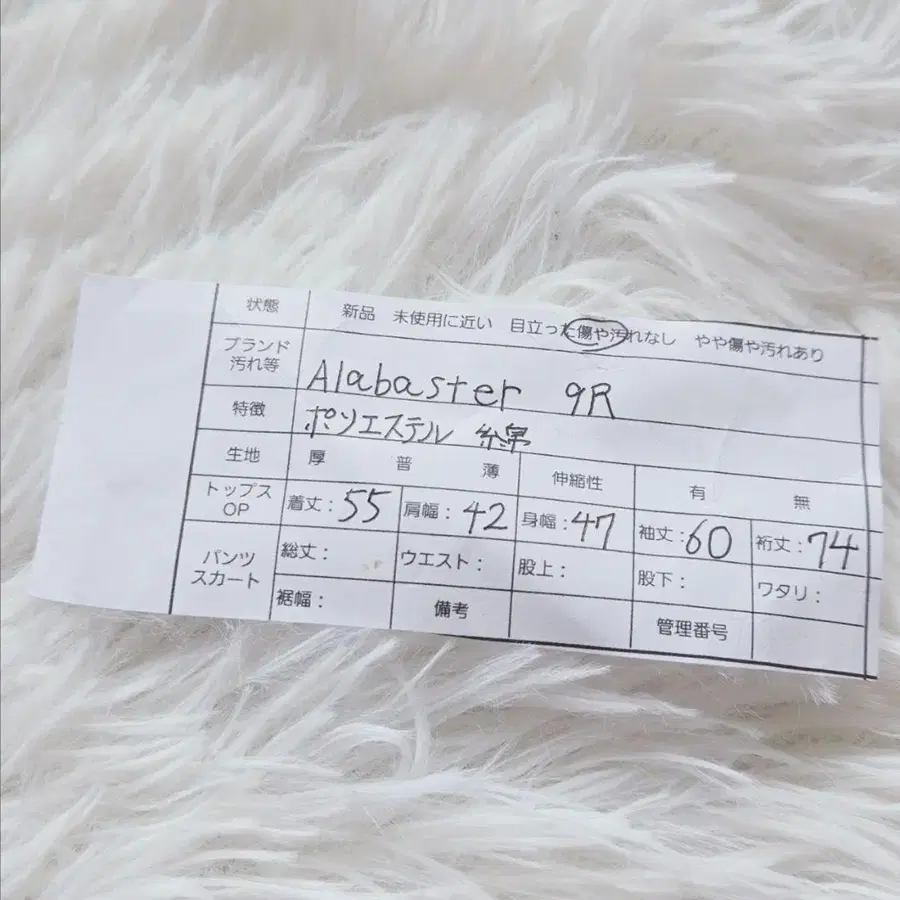 状態 新品 未使用に近い 目立った傷や汚れなし やや傷や汚れあり
ブランド
汚れ等 Alabaster 9R
特徴 ポリエステル 綿
生地 厚 普 薄 伸縮性 有 無
トップス
OP 着丈：55 肩幅：42 身幅：47 袖丈：60 裄丈：74
パンツ
スカート 総丈： ウエスト： 股上： 股下： ワタリ：
裾幅： 備考 管理番号